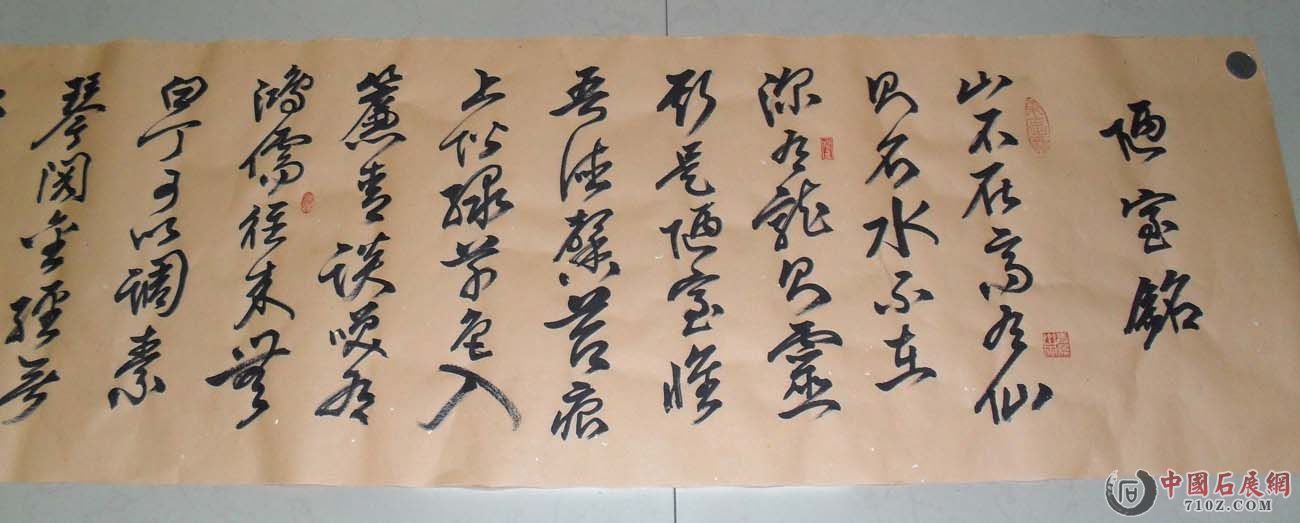 陋室銘
山不在高有仙
则名水不在
深有龍则靈
斯是陋室惟
吾德馨苔痕
上阶绿草色入
簾青谈咲有
鸿儒往来無
白丁可以调素
琴阅金经无
中國石展網
710Z.COM